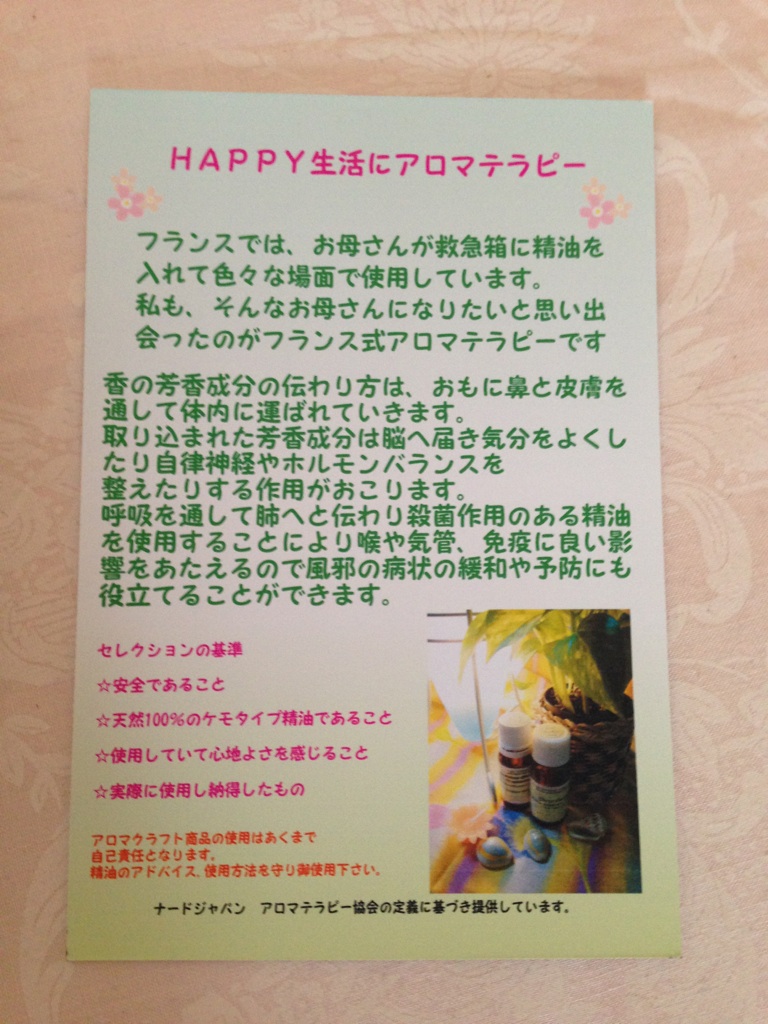 ＨＡＰＰＹ生活にアロマテラピー
フランスでは、お母さんが救急箱に精油を
入れて色々な場面で使用しています。
私も、そんなお母さんになりたいと思い出
会ったのがフランス式アロマテラピーです
香の芳香成分の伝わり方は、おもに鼻と皮膚を
通して体内に運ばれていきます。
取り込まれた芳香成分は脳へ届き気分をよくし
たり自律神経やホルモンバランスを
整えたりする作用がおこります。
呼吸を通して肺へと伝わり殺菌作用のある精油
を使用することにより喉や気管、免疫に良い影
響をあたえるので風邪の病状の緩和や予防にも
役立てることができます。
セレクションの基準
☆安全であること
☆天然100%のケモタイプ精油であること
☆使用していて心地よさを感じること
☆実際に使用し納得したもの
アロマクラフト商品の使用はあくまで
自己責任となります。
精油のアドバイス,使用方法を守り御使用下さい。
ナードジャパン　アロマテラピー協会の定義に基づき提供しています。